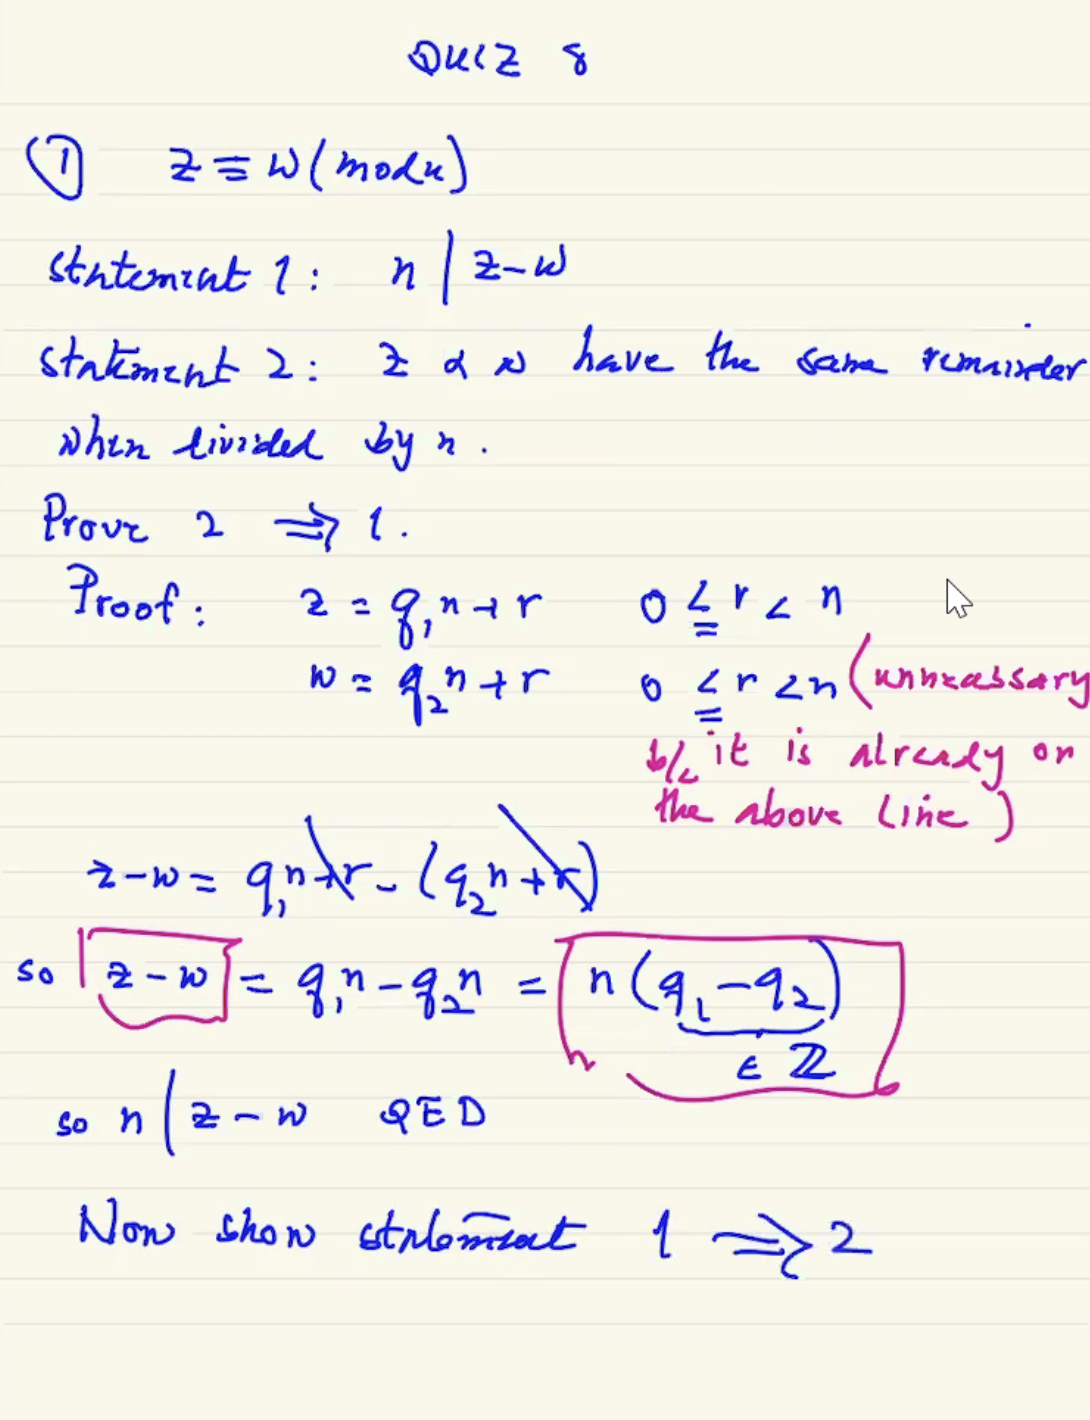 QUIZ 8
① z ≡ w (mod n)
statement 1: n | z-w
statement 2: z & w have the same remainder
when divided by n.
Prove 2 ⇒ 1.
Proof: z = q₁n + r 0 ≤ r < n
w = q₂n + r 0 ≤ r < n (unnecassary
b/c it is already on
the above line)
z-w = q₁n + r - (q₂n + r)
so z-w = q₁n - q₂n = n(q₁ - q₂)
∈ ℤ
so n | z-w QED
Now show statement 1 ⇒ 2